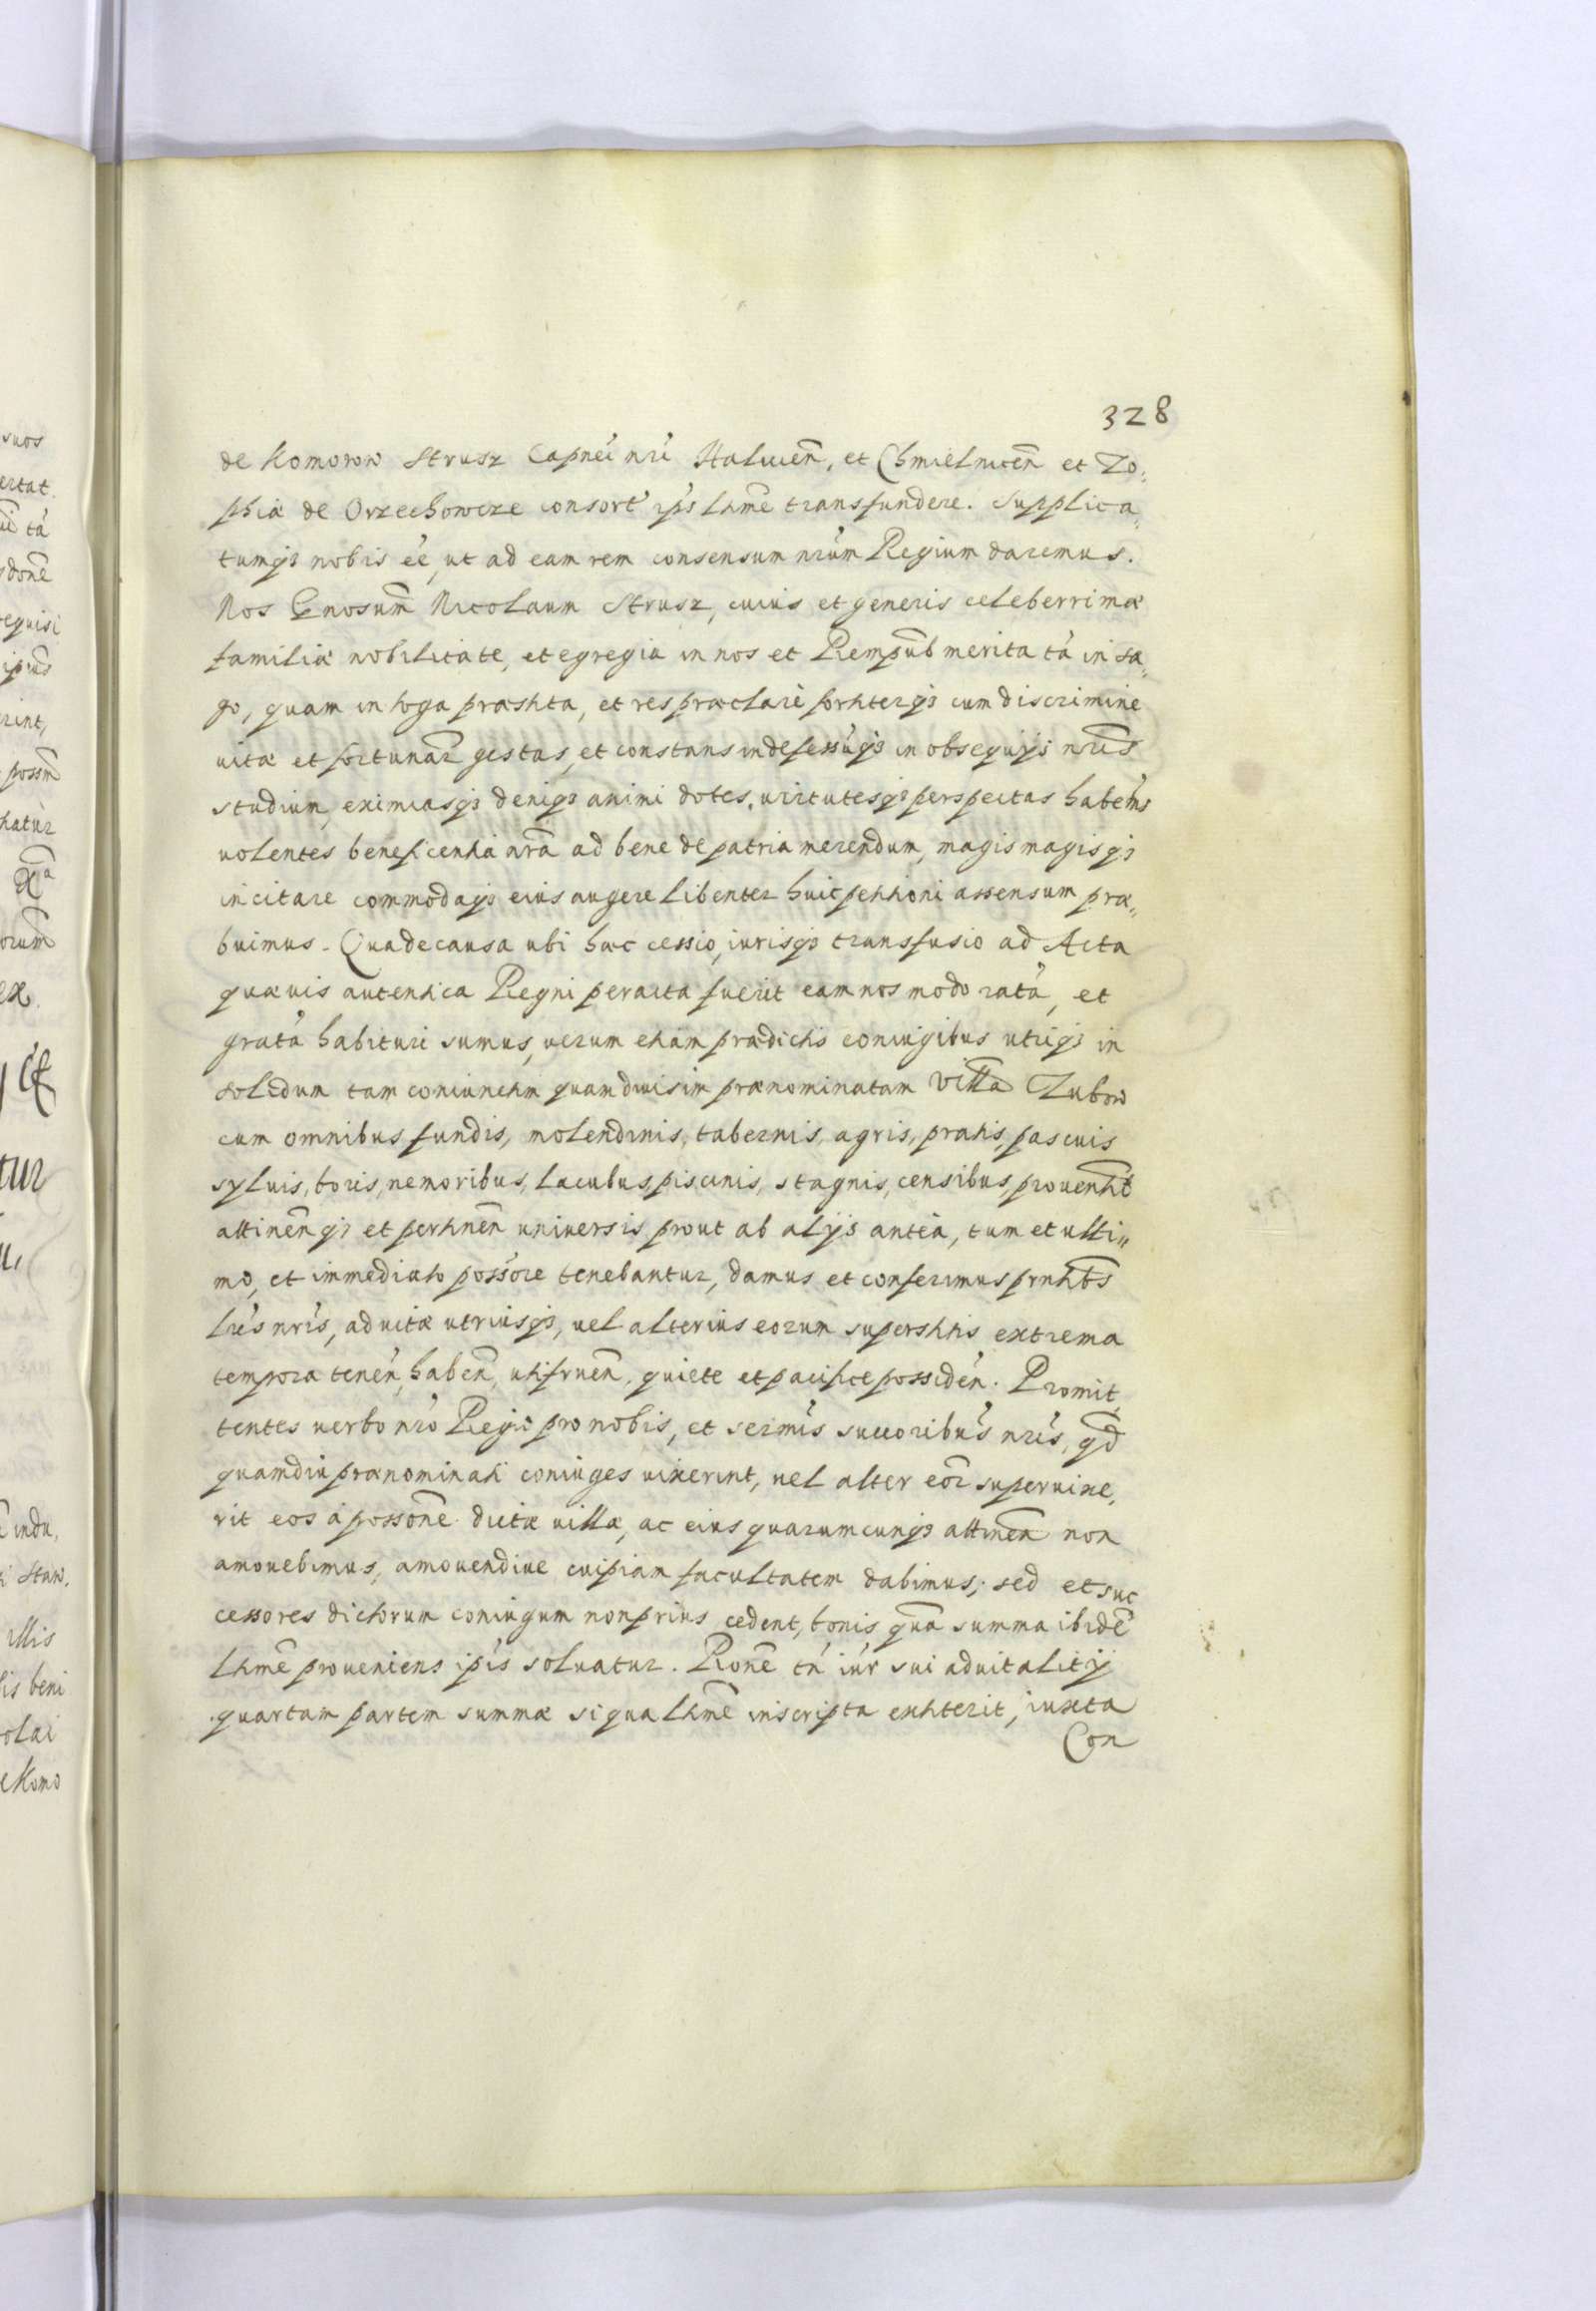 328
de Komorow Strusz Capnei nri Haliciēn, et Chmielnicēn et Zo,
phiæ de Orzechowcze consort' ips lr̄ime transfundere. Supplica,
tumq3 nobis eē, ut ad eam rem consensum nrūm Regium daremus.
Nos Gnosum̄ Nicolaum Strusz, cuius et generis celeberrimæ
familiæ nobilitate, et egregia in nos et Rempub̄ merita tā in sa,
go, quam in toga præstita, et res præclarè fortiterq3 cum discrimine
uitæ et fortunar̄ gestas, et constans indefessuq3 in obsequijs nrīs
studium, eximiasq3 deniq3 animi dotes, uirtutesq3 perspectas habētes
uolentes beneficentiā nrā ad bene de patria merendum, magis magisq3
incitare commodaq3 eius augere libenter huic petitioni assensum præ„
buimus. Qua de causa ubi hæc cessio, iurisq3 transfusio ad Acta
quæuis autentica Regni peracta fuerit eam nos modo ratā, et
gratā habituri sumus, uerum etiam prædictis coniugibus utriq3 in
solidum tam coniunctim quam diuisim prænominatam villā Zubow
cum omnibus fundis, molendinis, tabernis, agris, pratis, pascuis
syluis, boris, nemoribus, lacubus, piscinis, stagnis, censibus, prouentib̄
attinēnq3 et pertinēn uniuersis prout ab alijs anteà, tum et ulti„
mo, et immediato possōre tenebantur, damus et conferimus pn̄tibs
lrīs nrīs, ad uitæ utriusq3, uel alterius eorum superstitis extrema
tempora tenēn, habēn, utifruēn, quiete et pacifice possidēn. Promit,
tentes uerbo nrō Regio pro nobis, et sermīs succōribus nrīs, qd̄
quamdiu prænominati coniuges uixerint, uel alter eōr superuixe,
rit eos à possōne dictæ uillæ, ac eius quarumcunq3 attinēn non
amouebimus, amouendiue cuipiam facultatem dabimus; sed et suc
cessores dictorum coniugum non prius cedent, bonis quā summa ibidē
ltīme proueniens ipīs soluatur. Rōne tn̄ iur̄ sui aduitalitij
quartam partem summæ si qua ltīme inscripta extiterit, iuxta
Con